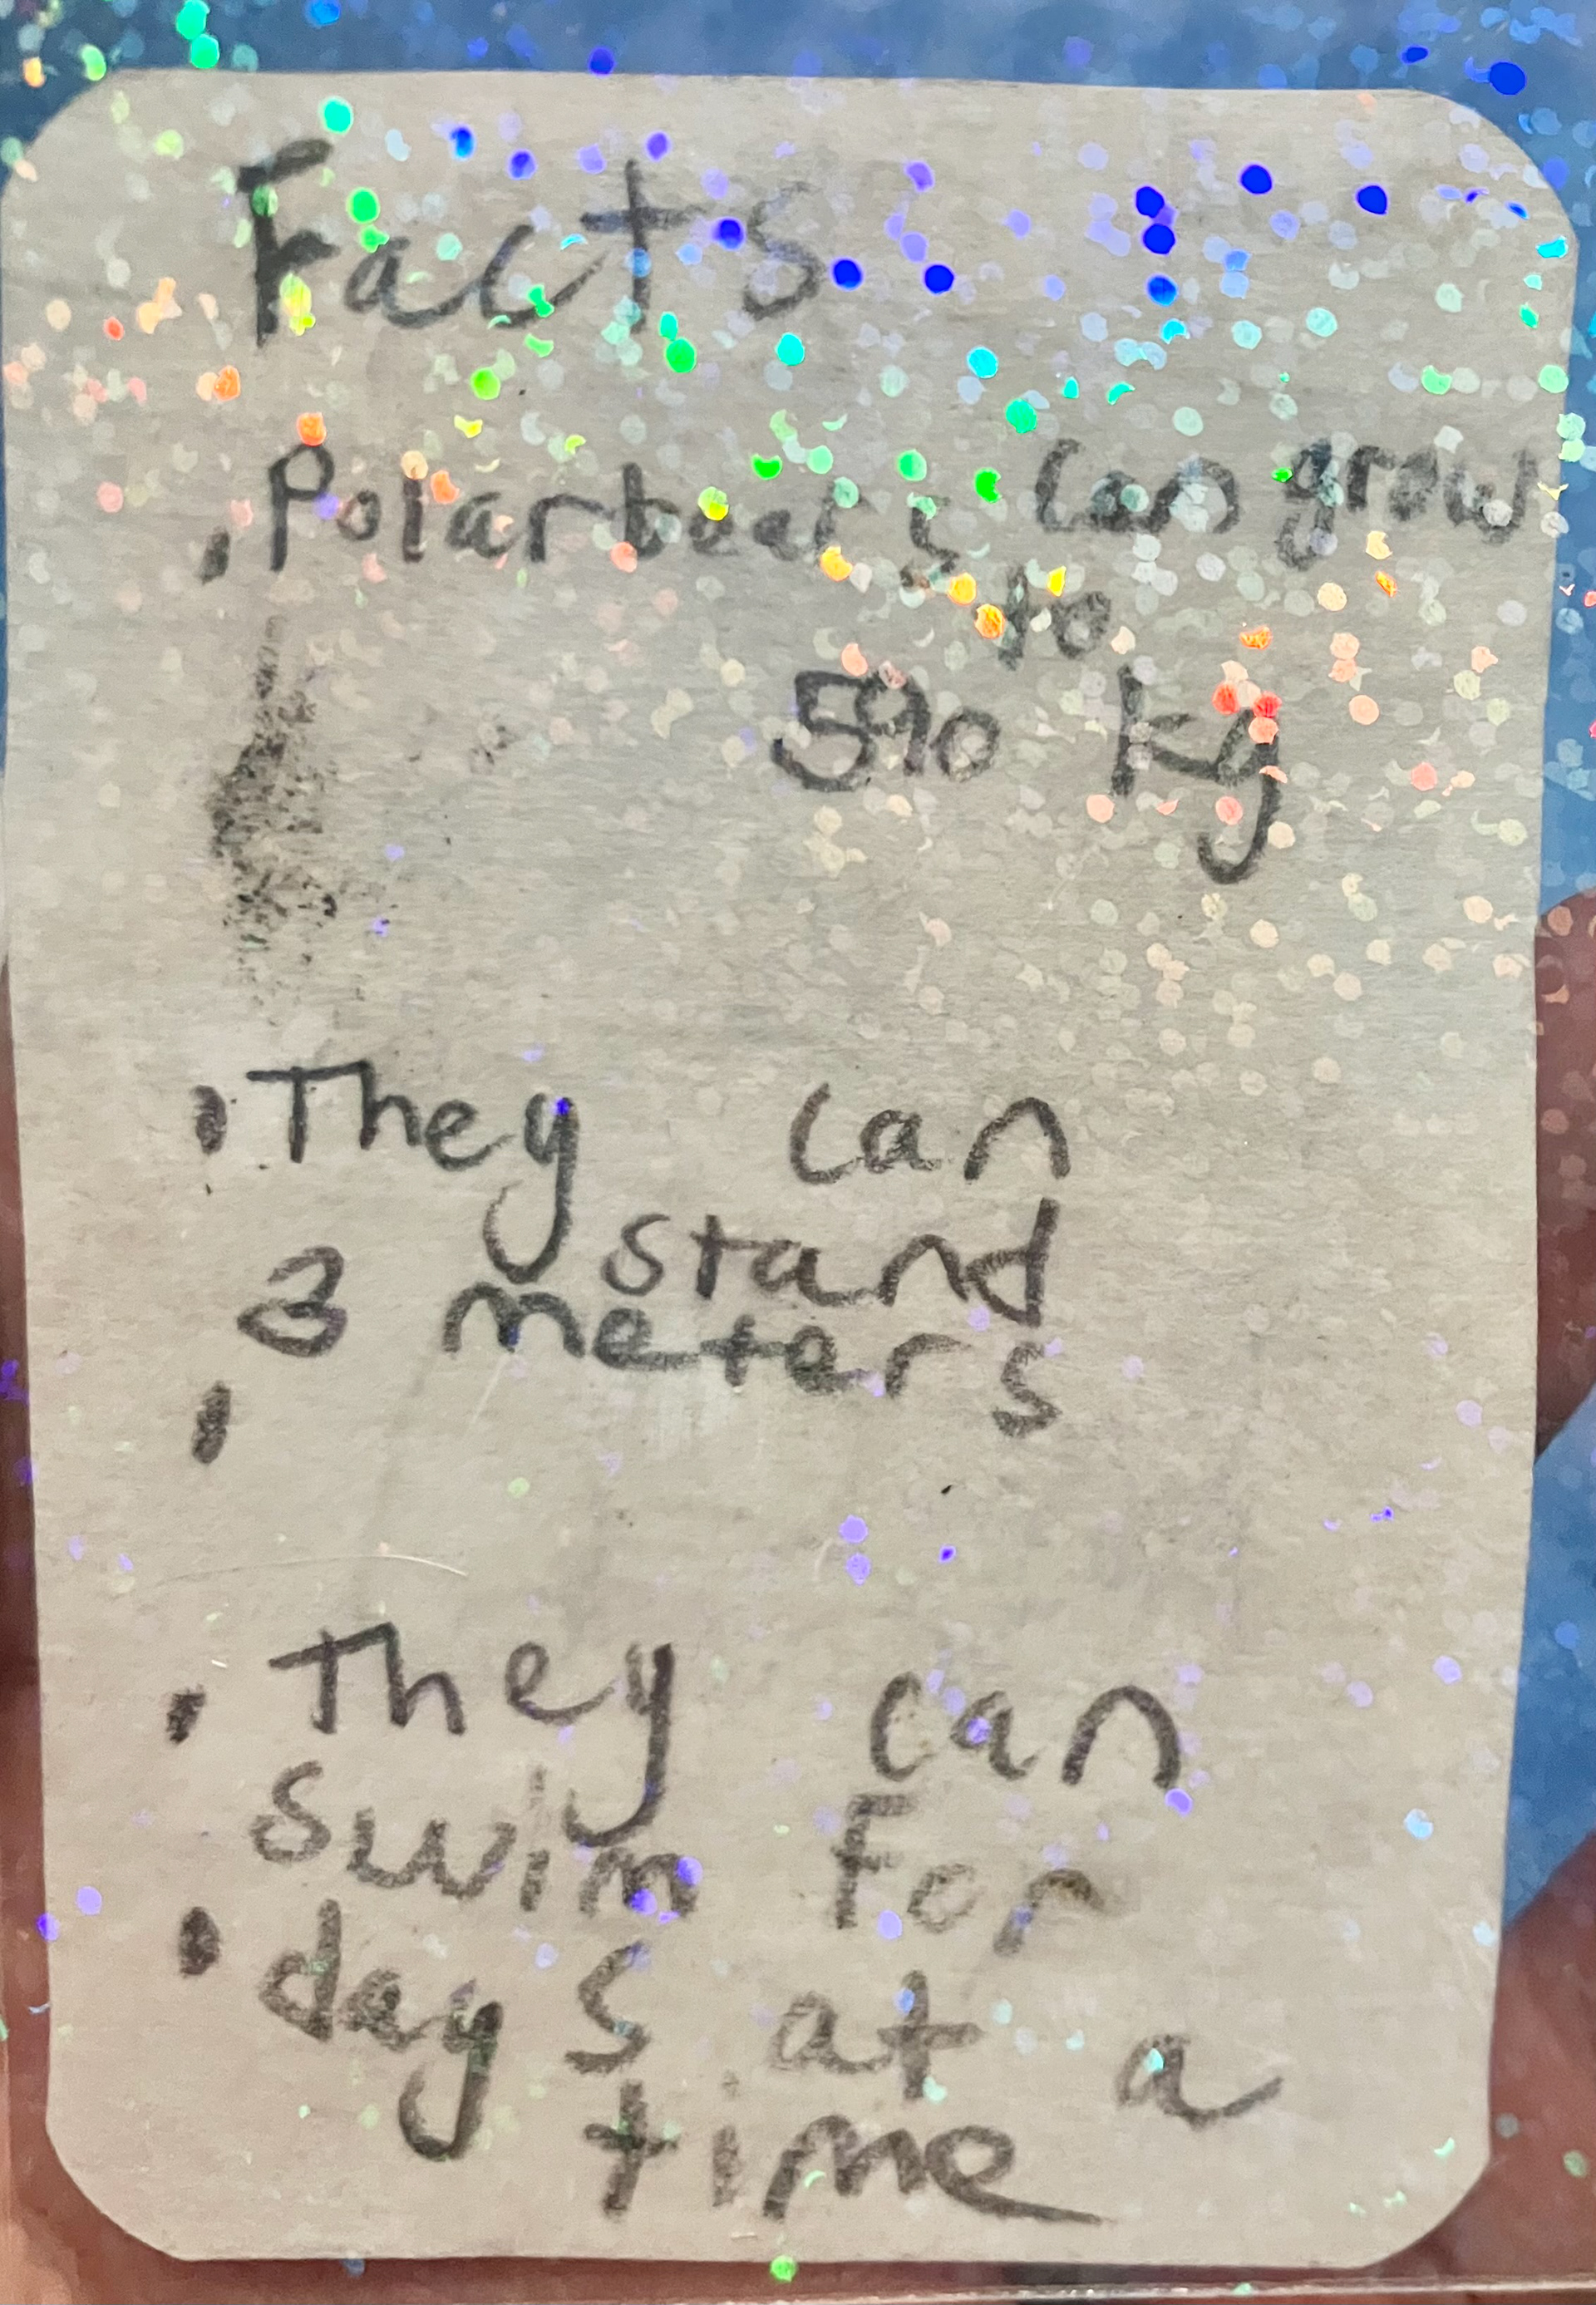 Facts
• Polarbears can grow
to
590 kg
• They can
stand
3 meters
•
• They can
swim For
• days at a
time